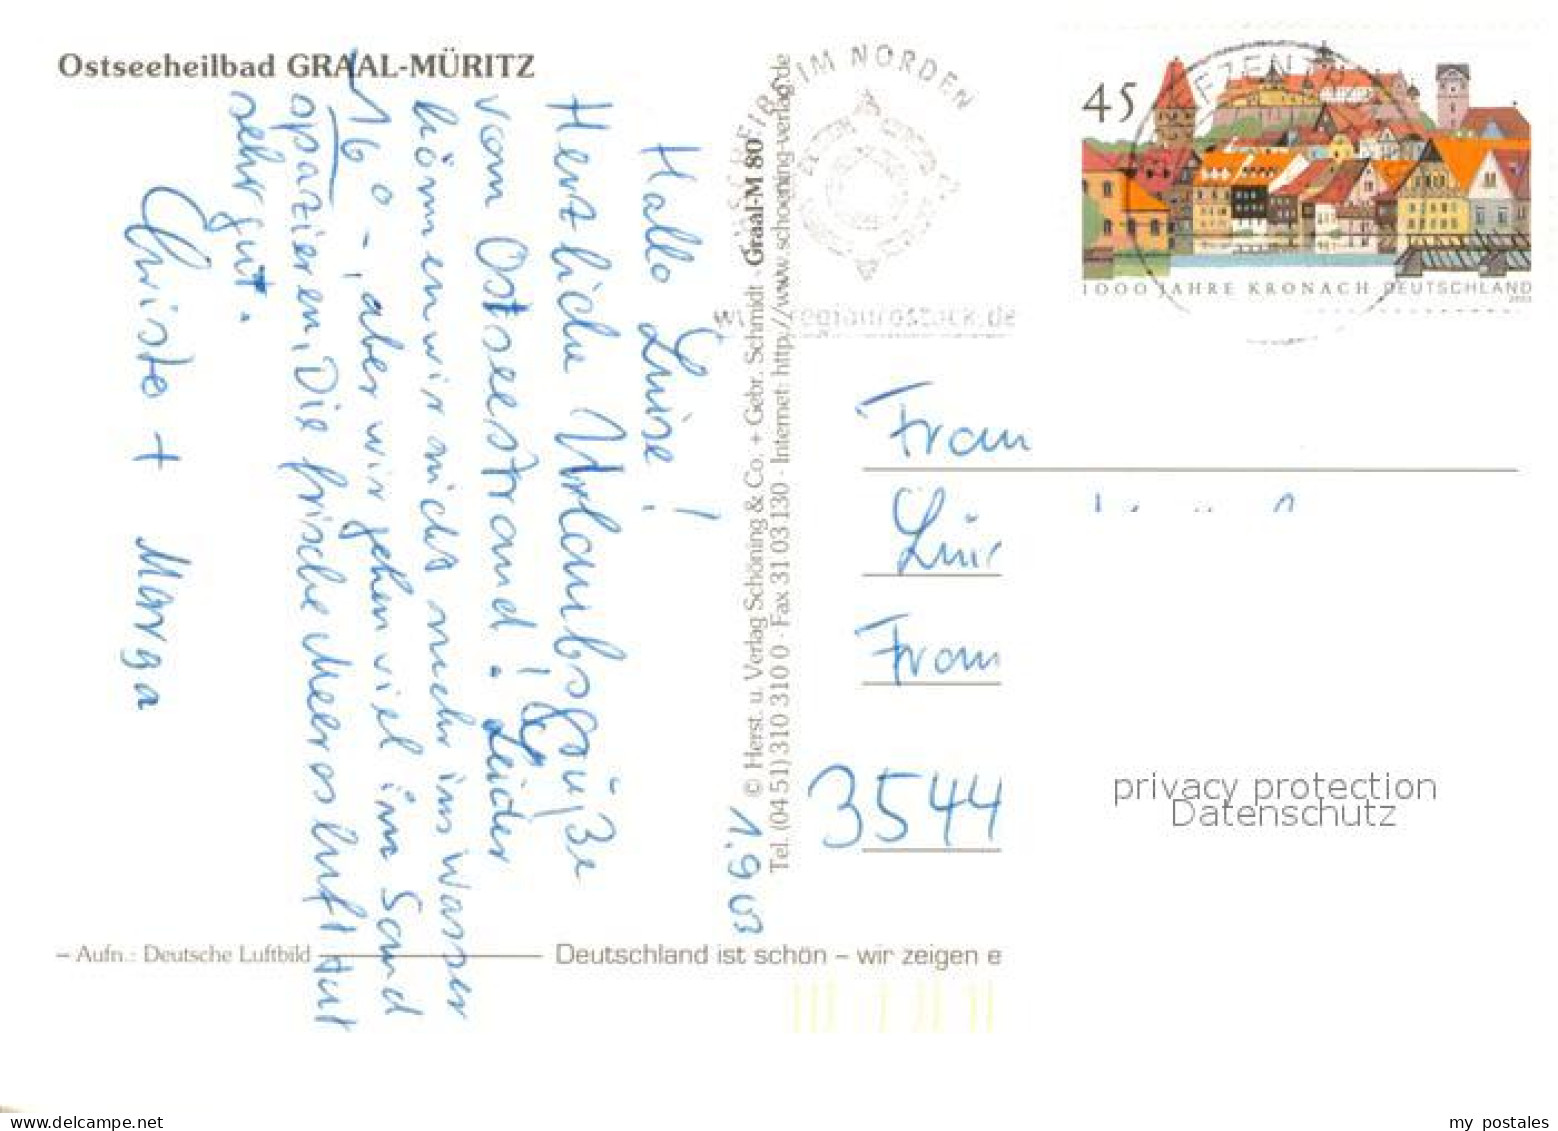 Ostseeheilbad GRAAL-MÜRITZ
Hallo Luise!
Herzliche Urlaubsgrüße
vom Ostseestrand! Leider
können wir nicht mehr ins Wasser
16° -, aber wir gehen viel im Sand
spazieren, Die frische Meeresluft tut
sehr gut.
Christa + Marga
1.9 03
© Herst. u. Verlag Schöning & Co. + Gebr. Schmidt · Graal-M 80
Tel. (04 51) 310 310 0 · Fax 31 03 130 · Internet: http://www.schoening-verlag.de
IM NORDEN
www.regionrostock.de
45
1000 JAHRE KRONACH DEUTSCHLAND
Frau
3544
privacy protection
Datenschutz
– Aufn.: Deutsche Luftbild
Deutschland ist schön – wir zeigen e
www.delcampe.net
my postales